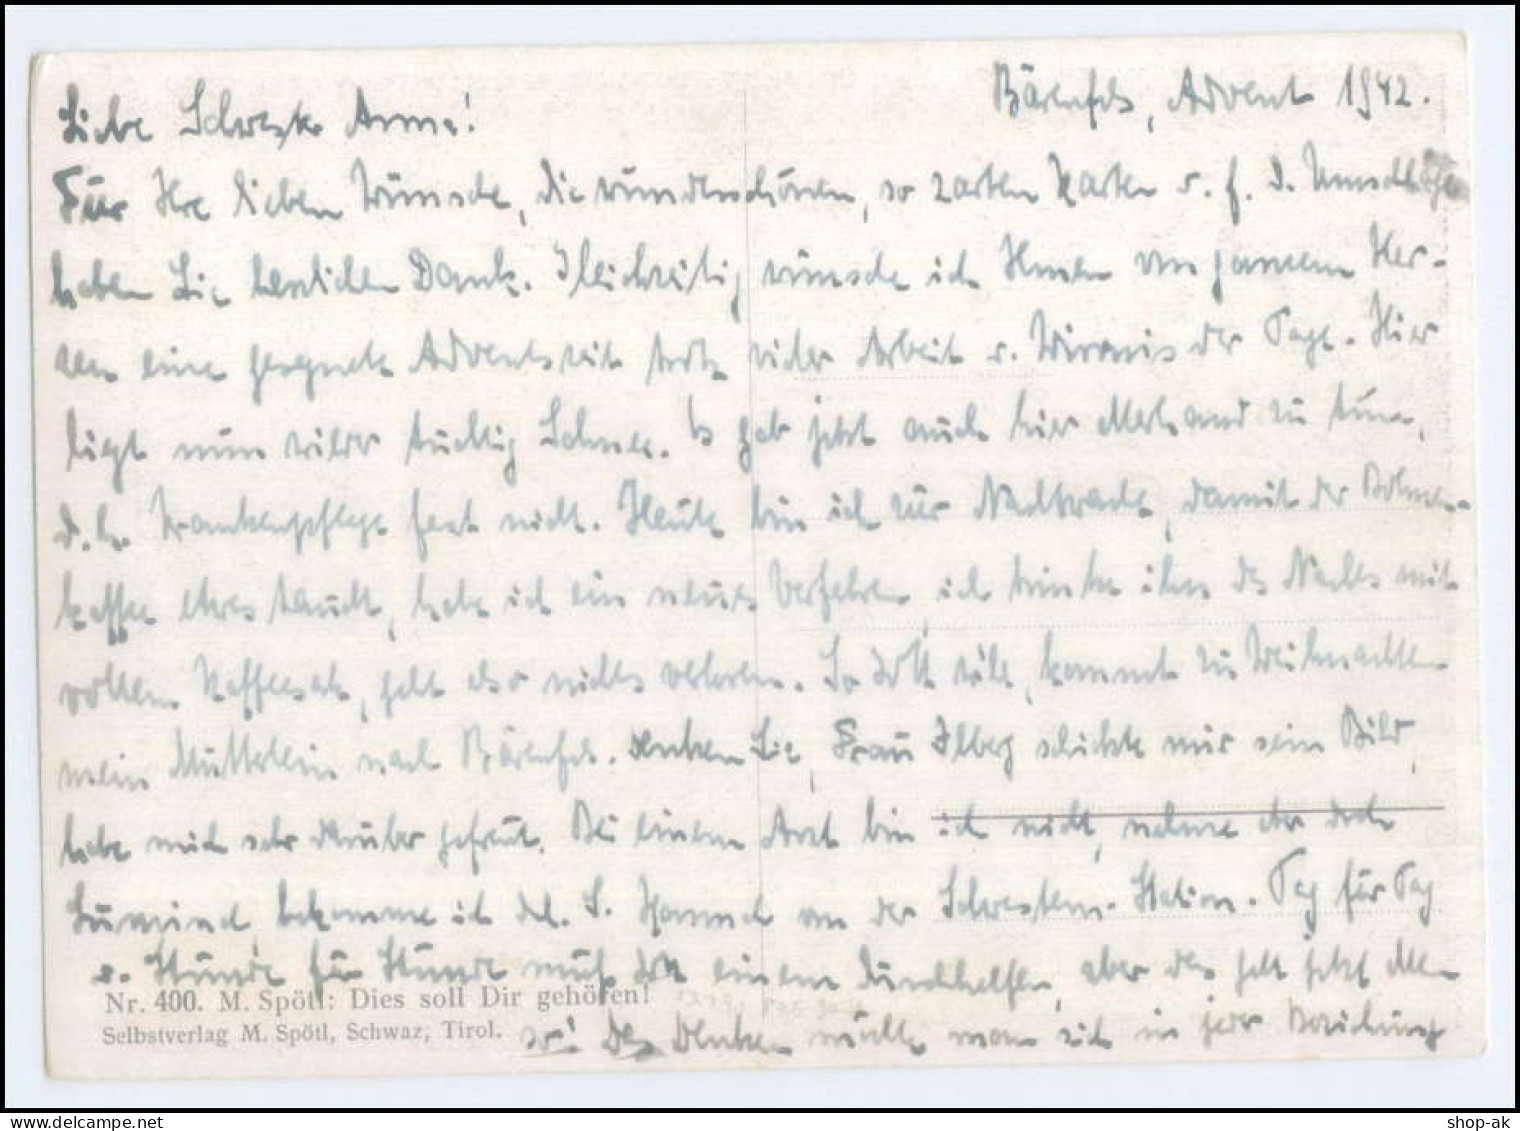 Bärenfels, Advent 1942.
Liebe Schwester Anna!
Für Ihre lieben Wünsche, die wunderschönen, so zarten Karten u. f. d. Umschläge
haben Sie herzlichen Dank. Gleichzeitig wünsche ich Ihnen von ganzem Her-
zen eine gesegnete Adventszeit trotz vieler Arbeit u. Wirrnis der Tage. Hier
liegt nun wieder tüchtig Schnee. Es gab jetzt auch hier allerhand zu tun,
d. h. Krankenpflege fast nicht. Heute bin ich zur Nachtwache, damit der Bohnen-
kaffee etwas taucht, habe ich ein neues Verfahren, ich trinke ihn des Nachts mit
vollem Kaffeesatz, geht also nichts verloren. So Gott will, kommt zu Weihnachten
mein Mütterlein nach Bärenfels. Denken Sie, Frau Ilberg schickte mir sein Bild,
habe mich sehr darüber gefreut. Bei einem Arzt bin ich nicht, nehme aber doch
Luminal, bekomme ich del. S. von der Schwestern-Station. Tag für Tag
u. Stunde für Stunde muß Gott einem durchhelfen, aber das geht jetzt allen
so! Das Denken möchte man sich in jeder Beziehung
Nr. 400. M. Spötl: Dies soll Dir gehören!
Selbstverlag M. Spötl, Schwaz, Tirol.
shop-ak